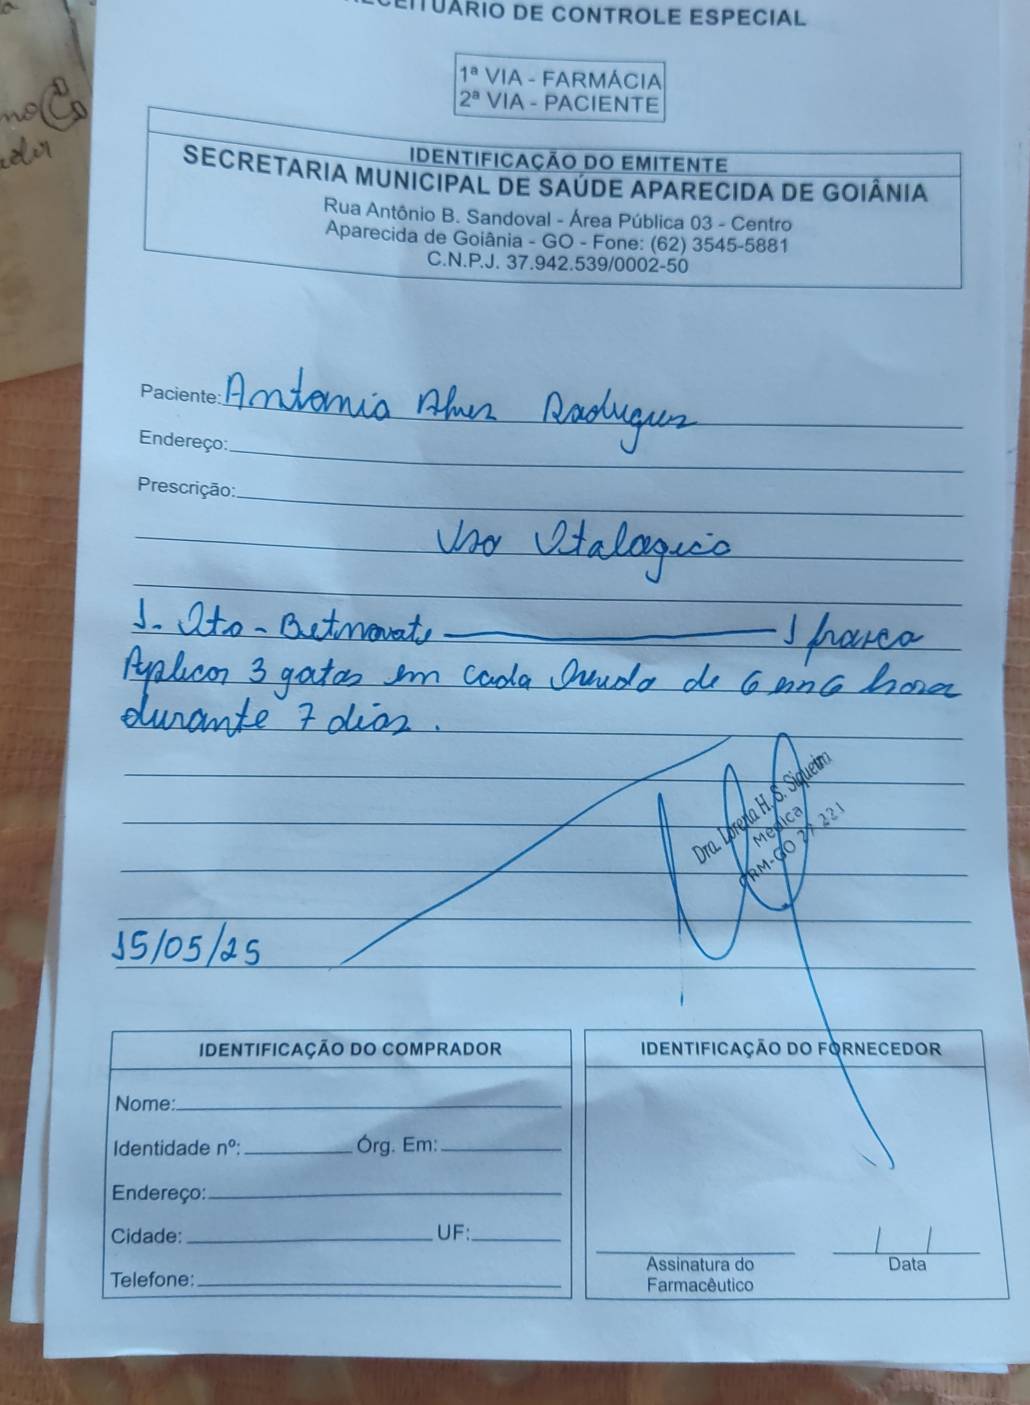 CEITUÁRIO DE CONTROLE ESPECIAL
1ª VIA - FARMÁCIA
2ª VIA - PACIENTE
IDENTIFICAÇÃO DO EMITENTE
SECRETARIA MUNICIPAL DE SAÚDE APARECIDA DE GOIÂNIA
Rua Antônio B. Sandoval - Área Pública 03 - Centro
Aparecida de Goiânia - GO - Fone: (62) 3545-5881
C.N.P.J. 37.942.539/0002-50
Paciente: Antonia Alves Rodrigues
Endereço:
Prescrição:
Uso Otologico
1. Oto-Betnovate 1 frasco
Aplicar 3 gotas em cada Ouvido de 6 em 6 horas
durante 7 dias.
Dra. Lorena H. S. Siqueira
Médica
CRM-GO 27.221
15/05/25
IDENTIFICAÇÃO DO COMPRADOR
Nome:
Identidade nº: Órg. Em:
Endereço:
Cidade: UF:
Telefone:
IDENTIFICAÇÃO DO FORNECEDOR
Assinatura do
Farmacêutico
Data